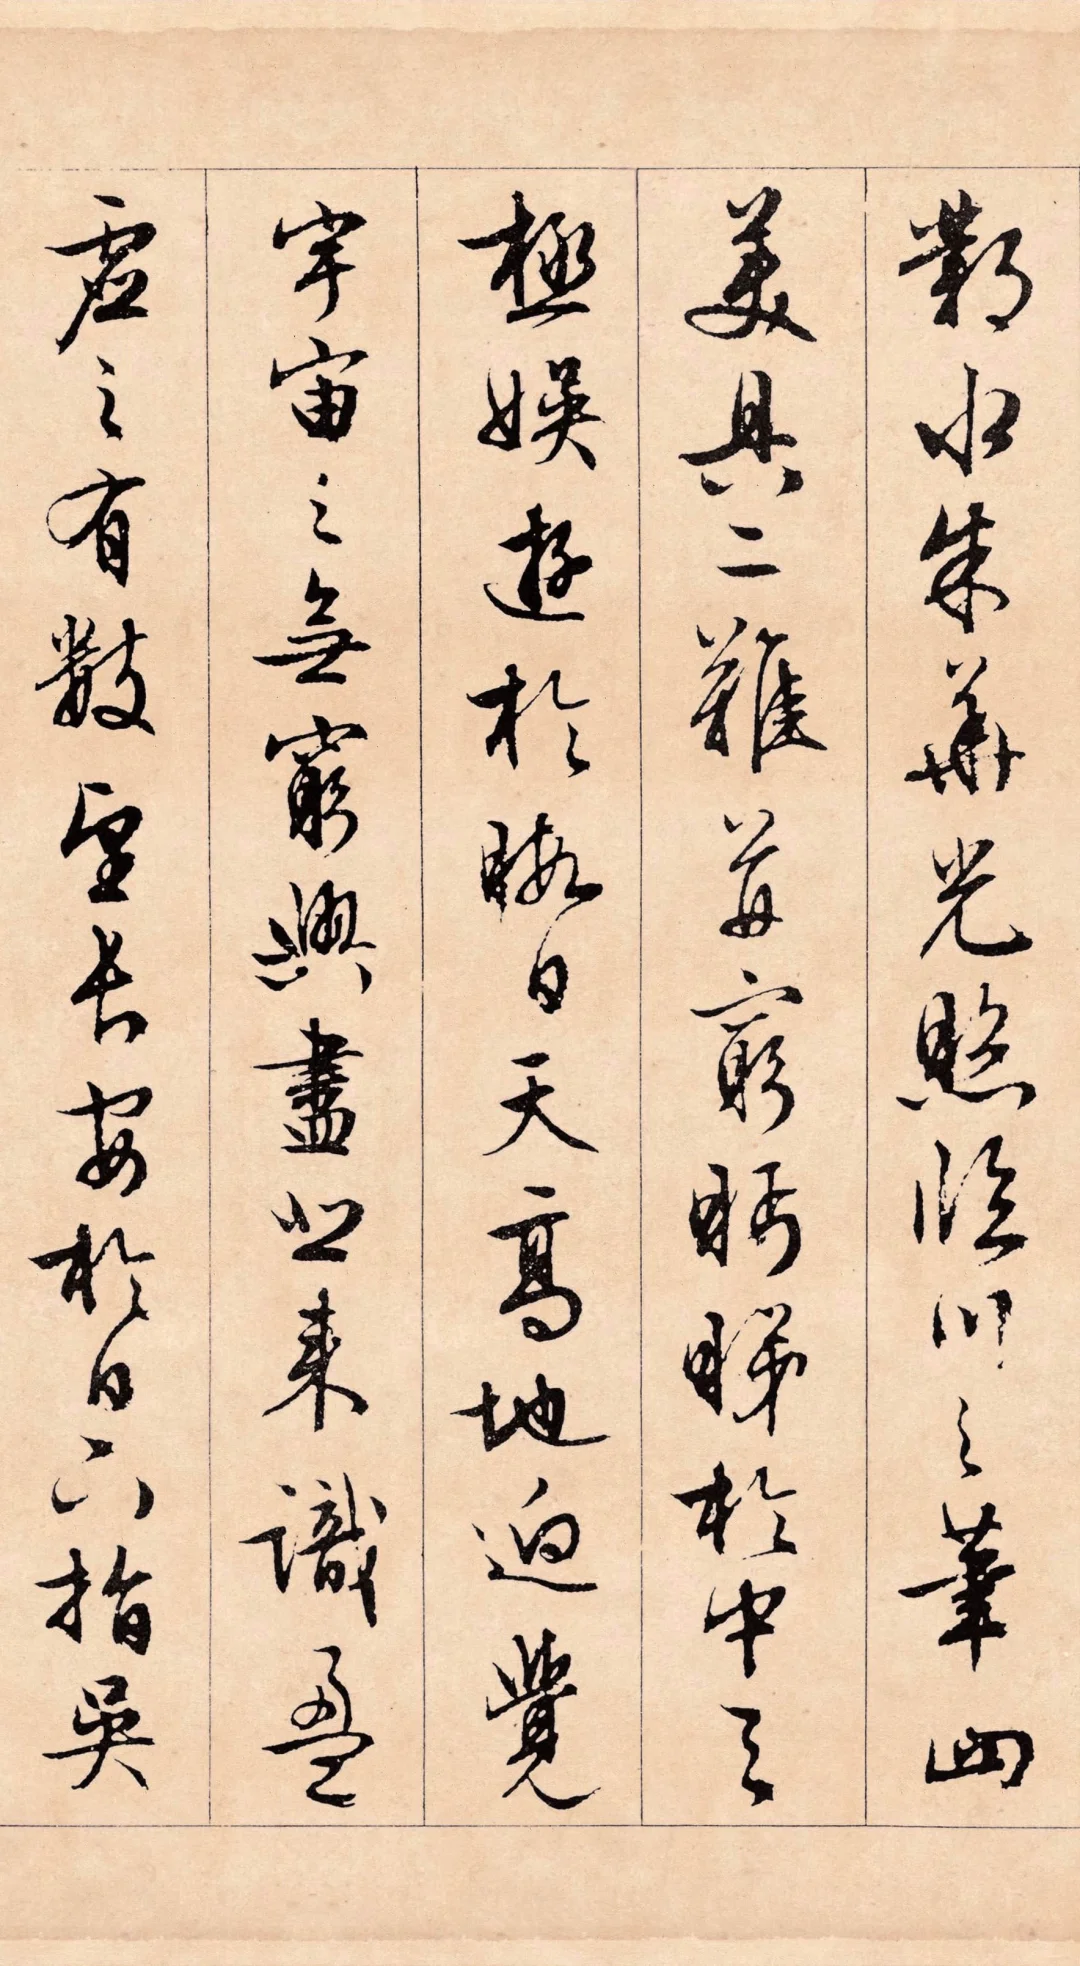 鄴水朱華光照臨川之筆四
美具二難并窮眄睇於中天
極娛遊於暇日天高地逈覺
宇宙之無窮興盡悲來識盈
虛之有數望長安於日下指吳